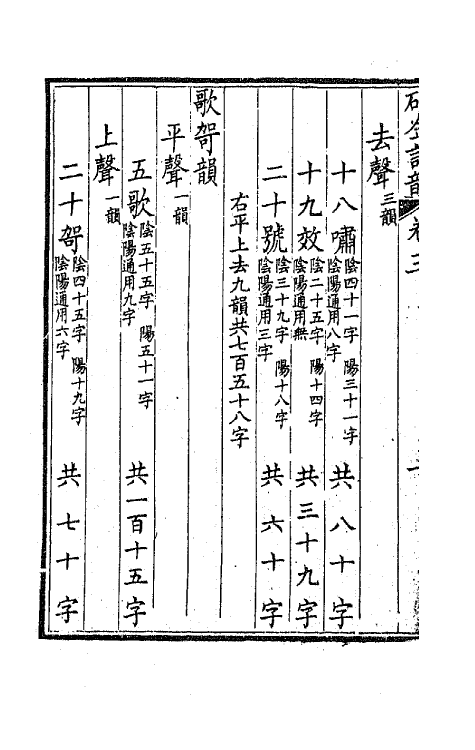 去聲三韻
十八嘯陰四十一字 陽三十一字 陰陽通用八字 共八十字
十九效陰二十五字 陽十四字 陰陽通用無 共三十九字
二十號陰三十九字 陽十八字 陰陽通用三字 共六十字
右平上去九韻共七百五十八字
歌哿韻
平聲一韻
五歌陰五十五字 陽五十一字 陰陽通用九字 共一百十五字
上聲一韻
二十哿陰四十五字 陽十九字 陰陽通用六字 共七十字